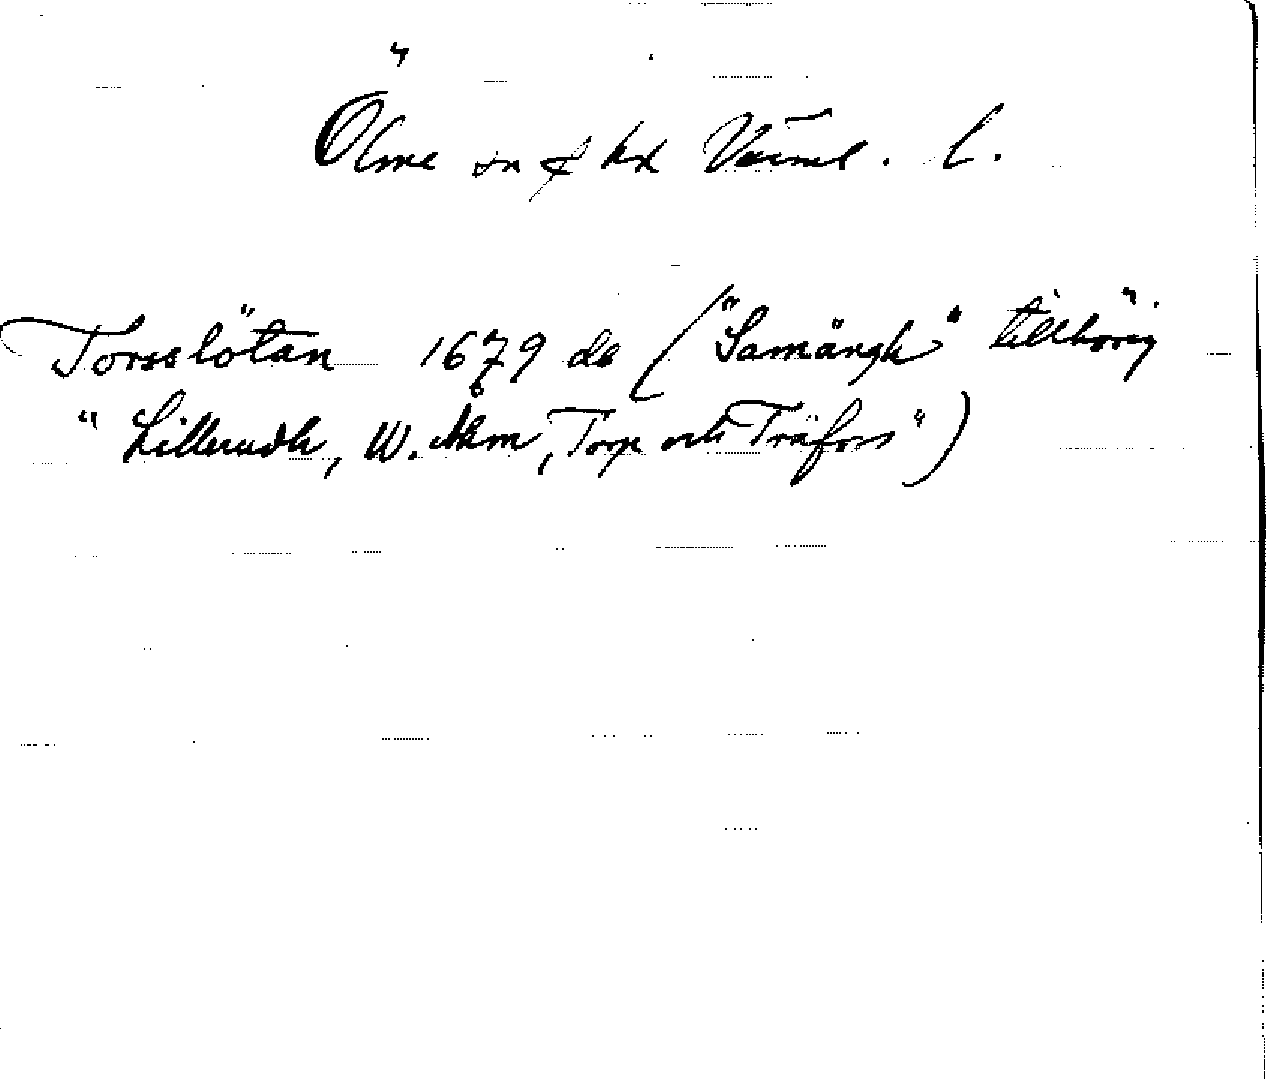 Ölme sn & hd Värml. l.
Torsslötan 1679 ds ("Samängh" tillhörig
"Lillerudh, W. Åhm, Torp och Träfors")